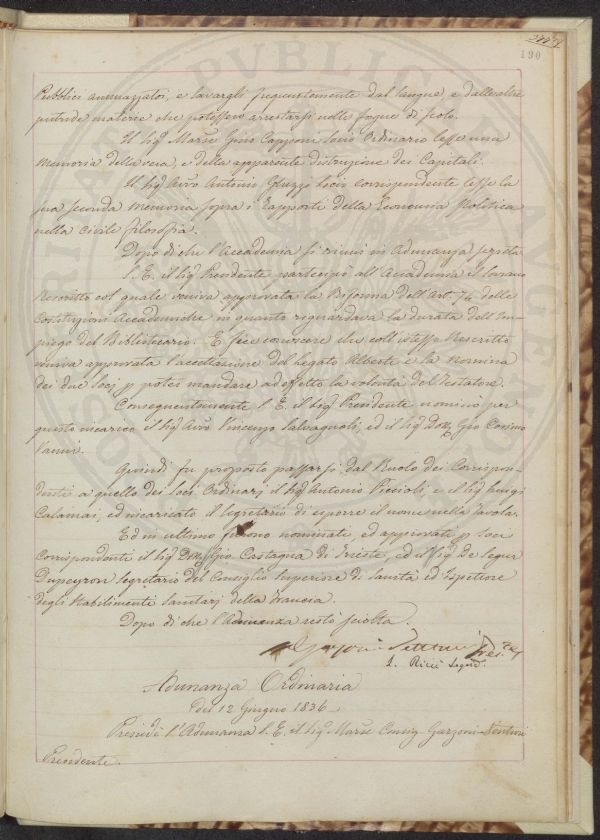 190
Pubblici ammazzatoi, e lavargli frequentemente dal sangue, e dalle altre
putride materie che potessero arrestarsi nelle fogne di scolo.
Il Sigr. Marse. Gino Capponi Socio Ordinario lesse una
Memoria della vera, e della apparente distruzione dei Capitali.
Il Sigr. Avvo. Antonio Ghezzi Socio corrispondente lesse la
sua seconda Memoria sopra i rapporti della Economia Politica
nella civile filosofia.
Dopo di che l'Accademia si riunì in Adunanza segreta
S. E. il Sigr. Presidente partecipò all'Accademia il Sovrano
Rescritto col quale veniva approvata la Riforma dell'Art. 74 delle
Costituzioni Accademiche in quanto riguardava la durata dell'Im-
piego del Bibliotecario. E fece conoscere che coll'istesso Rescritto
veniva approvata l'accettazione del Legato Alberti e la Nomina
dei due Socj p potei mandare ad effetto la volontà del Testatore.
Conseguentemente S. E. il Sigr. Presidente nominò per
questo incarico il Sigr. Avvo. Vincenzo Salvagnoli, ed il Sigr. Dott. Gio Cosimo
Vanni.
Quindi fu proposto passarsi dal Ruolo dei Corrispon-
denti a quello dei Soci Ordinarj il Sigr. Antonio Piccioli, e il Sigr. Luigi
Calamai, ed incaricato il Segretario di esporre il nome nella Tavola.
Ed in ultimo furono nominati, ed approvati p Soci
Corrispondenti il Sigr. Dott. Gio Castagna di Trieste, ed il Sigr. De Segur
Dupeyron Segretario del Consiglio Superiore di Sanità ed Ispettore
degli Stabilimenti Sanitarj della Francia.
Dopo di che l'Adunanza restò sciolta.
Garzoni Venturi Pres.te
L. Ricci Segrio.
Adunanza Ordinaria
del 12 Giugno 1836
Presiedè l'Adunanza S. E. il Sigr. Marse. Garzoni Venturi
Presidente.